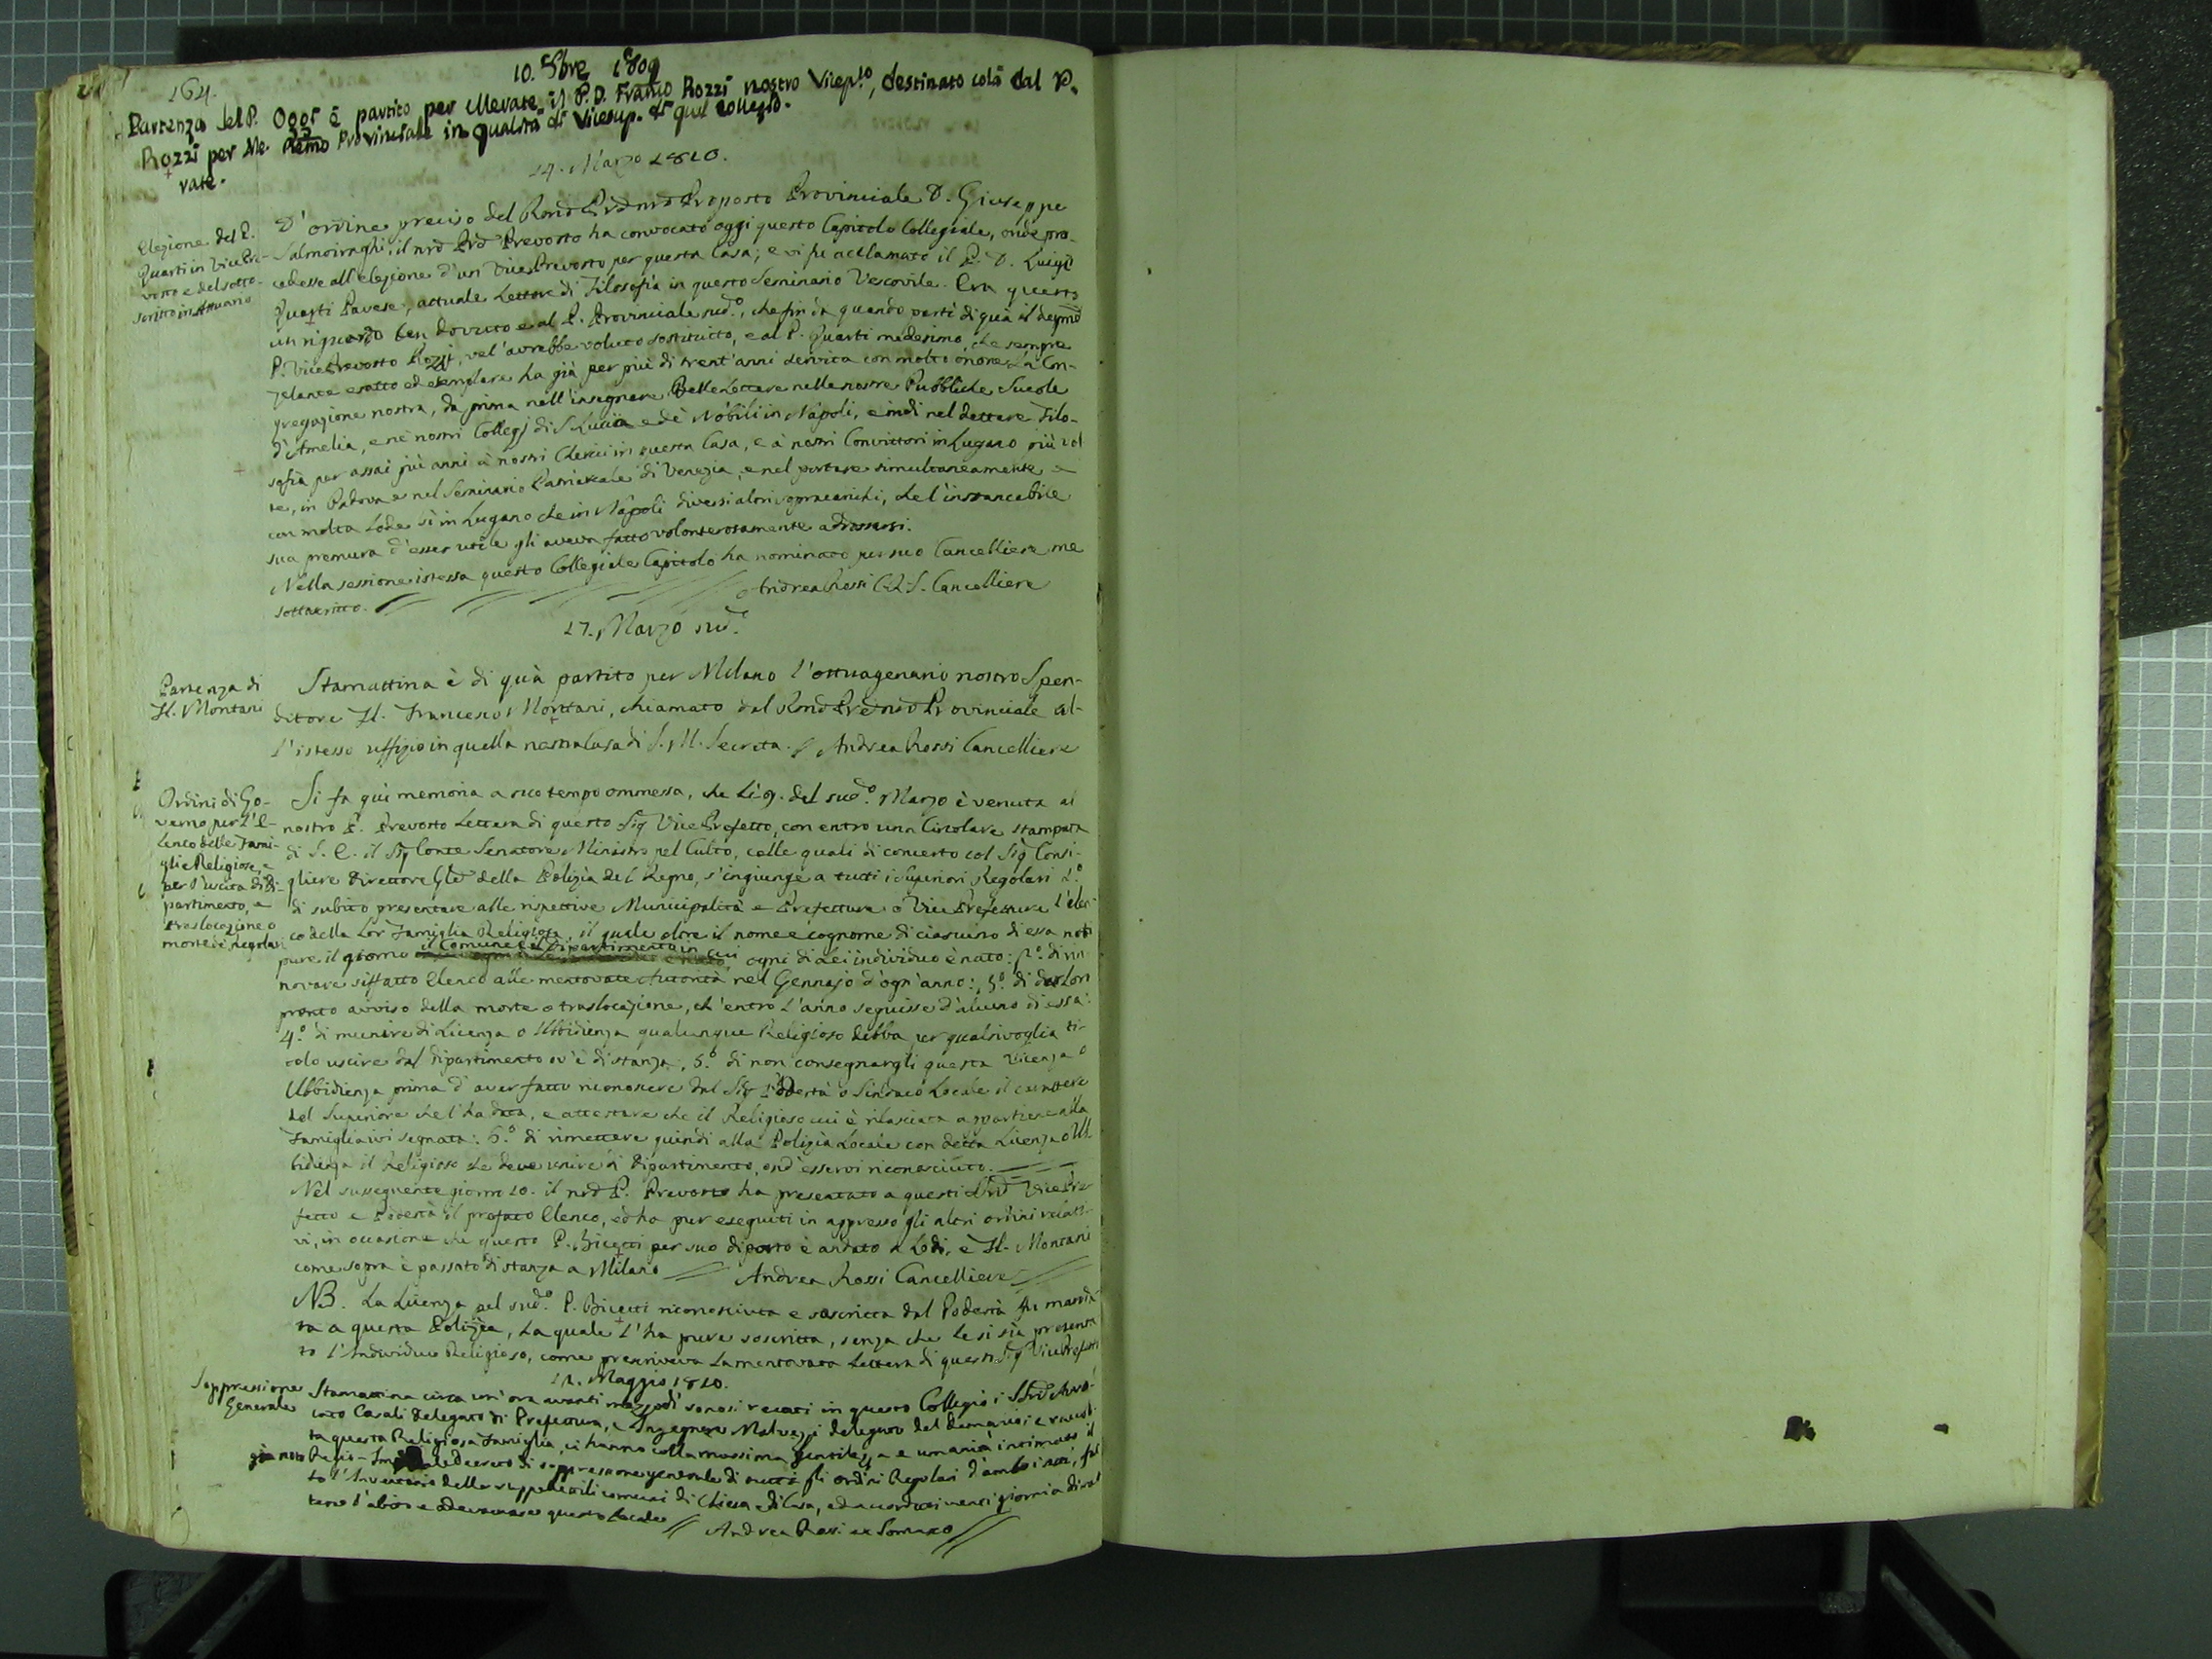 164.
10. 8bre 1809
Partenza del P.
Rozzi per Me-
rate.
Oggi è partito per Merate il P. D. Franco Rozzi nostro Vicepto, destinato colà dal P.
Rmo Provinciale in qualità di Vicesup. di quel Collegio.
14. Marzo 1810.
Elezione del P.
Quarti in Vice Pre-
vosto e del sotto-
scritto in Attuario
D'ordine preciso del Rmo Pre nro Proposto Provinciale D. Giuseppe
Salmoiraghi, il nro Pre Prevosto ha convocato oggi questo Capitolo Collegiale, onde pro-
cedesse all'elezione d'un Vice Prevosto per questa Casa; e vi fu acclamato il P. D. Luigi
Quarti Pavese, attuale Lettore di Filosofia in questo Seminario Vescovile. Era questo
un riguardo ben dovuto e al P. Provinciale sudo, che fin da quando partì di quà il degmo
P. Vice Prevosto Rozzi, vel'avrebbe voluto sostituito, e al P. Quarti medesimo, che sempre
zelante esatto ed esemplare ha già per più di trent'anni servita con molto onore la Con-
gregazione nostra, da prima nell'insegnare Belle Lettere nelle nostre Pubbliche Scuole
d'Amelia, e ne' nostri Collegj di S. Lucia e de' Nobili in Napoli, e indi nel dettare Filo-
sofia per assai più anni a' nostri Cherici in questa Casa, e a' nostri Convittori in Lugano più vol
te, in Padova e nel Seminario Patriarcale di Venezia, e nel portare simultaneamente e
con molta lode sì in Lugano che in Napoli diversi altri sopracarichi, che l'instancabile
sua premura d'esser utile gli aveva fatto volonterosamente addossarsi.
Nella sessione istessa questo Collegiale Capitolo ha nominato per suo Cancelliere me
sottoscritto. Andrea Rossi C.R.S. Cancelliere
17. Marzo sudo
Partenza di
Fl. Montani
Stamattina è di quà partito per Milano l'ottuagenario nostro Spen-
ditore Fl. Francesco Montani, chiamato dal Rmo Pre nro Provinciale al-
l'istesso uffizio in quella nostra Casa di S. M. Secreta. Andrea Rossi Cancelliere
Ordini di Go-
verno per l'E-
lenco delle Fami-
glie Religiose, e
per l'uscita di Di-
partimento, e
traslocazione o
morte di Regolari
Si fa quì memoria a suo tempo ommessa, che li 9. del sudo Marzo è venuta al
nostro P. Prevosto Lettera di questo Sig Vice Prefetto, con entro una Circolare stampata
di S. E. il Sig Conte Senatore Ministro pel Culto, colle quali di concerto col Sig Consi-
gliere Direttore Gle della Polizia del Regno, s'ingiunge a tutti i Superiori Regolari 1.o
di subito presentare alle rispettive Municipalità e Prefetture o Vice Prefetture l'elen-
co della lor Famiglia Religiosa, il quale oltre il nome e cognome di ciascuno di essa noti
pure il giorno il Comune e il Dipartimento in cui ogni di lei individuo è nato: 2.o di rin-
novare siffatto Elenco alle mentovate Autorità nel Gennajo d'ogn'anno: 3.o di dar loro
pronto avviso della morte o traslocazione, ch'entro l'anno seguisse d'alcuno di essa:
4.o di munire di Licenza o Ubbidienza qualunque Religioso debba per qualsivoglia ti-
tolo uscire dal Dipartimento ov'è di stanza; 5.o di non consegnargli questa Licenza o
Ubbidienza prima d'aver fatto riconoscere dal Sig Podestà o Sindaco Locale il carattere
del Superiore che l'ha data, e attestare che il Religioso cui è rilasciata appartiene alla
Famiglia ivi segnata: 6.o di rimettere quindi alla Polizia Locale con detta Licenza o Ub
bidienza il Religioso che deve uscire di Dipartimento, ond'esservi riconosciuto.
Nel susseguente giorno 10. il nro P. Prevosto ha presentato a questi Sri Vice Pre-
fetto e Podestà il prefato Elenco, ed ha pur eseguiti in appresso gli altri ordini relati-
vi, in occasione che questo P. Bicetti per suo diporto è andato a Lodi, e Fl. Montani
come sopra è passato di stanza a Milano Andrea Rossi Cancelliere
NB. La Licenza pel sudo P. Bicetti riconosciuta e soscritta dal Podestà fu manda-
ta a questa Polizia, la quale l'ha pure soscritta, senza che le si sia presenta
to l'Individuo Religioso, come prescriveva la mentovata Lettera di questo Sig Vice Prefetto
Maggio 1810.
Soppressione
Generale
Stamattina circa un'ora avanti mezzodì sonosi recati in questo Collegio i Sri Avvo-
cato Casali delegato di Prefettura, e Ingegnere Malvezzi delegato del demanio; e raccol-
ta questa Religiosa Famiglia, ci hanno colla massima gentilezza e umanità intimato il
già noto Regio-Imple decreto di soppressione generale di tutti gli ordini Regolari d'ambi i sessi, fat
to l'Inventario delle suppellettili comuni di Chiesa e di Casa, ed accordatici venti giorni a dimet
tere l'abito e ad evacuare questo Locale
Andrea Rossi ex Somasco